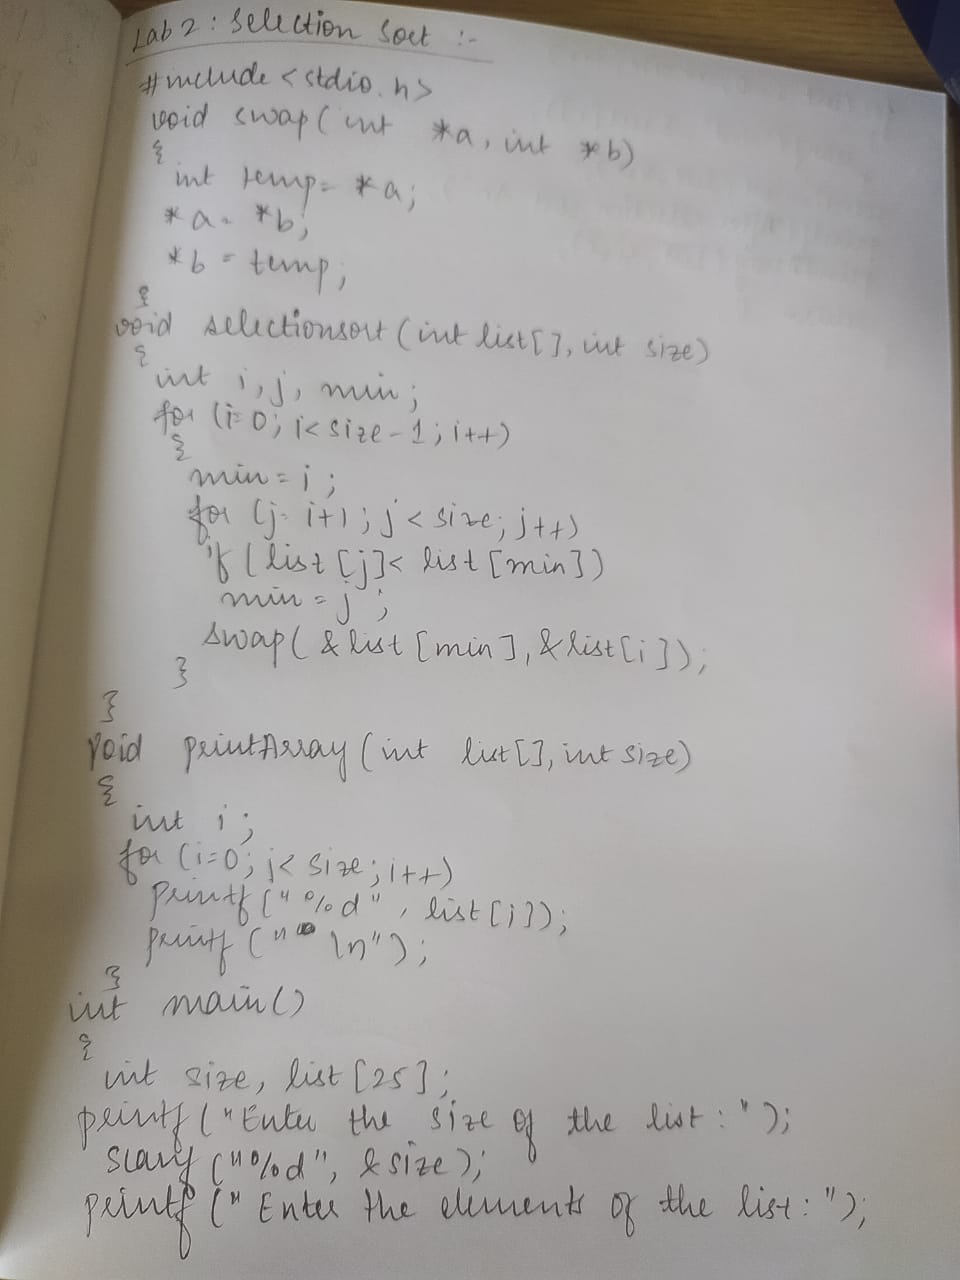 Lab 2 : Selection Sort :-
#include <stdio.h>
void swap( int *a, int *b)
{
int temp= *a;
*a= *b;
*b = temp;
}
void selectionsort (int list[], int size)
{
int i, j, min;
for (i=0; i<size-1; i++)
{
min = i ;
for (j= i+1 ; j < size; j++)
if ( list [j]< list [min])
min = j ;
swap( & list [min], & list[i]);
}
}
void printArray (int list[], int size)
{
int i ;
for (i=0; i< size; i++)
printf (" %d" , list [i]);
printf (" \n");
}
int main()
{
int size, list [25];
printf ("Enter the size of the list : ");
scanf ("%d", &size);
printf (" Enter the elements of the list : ");